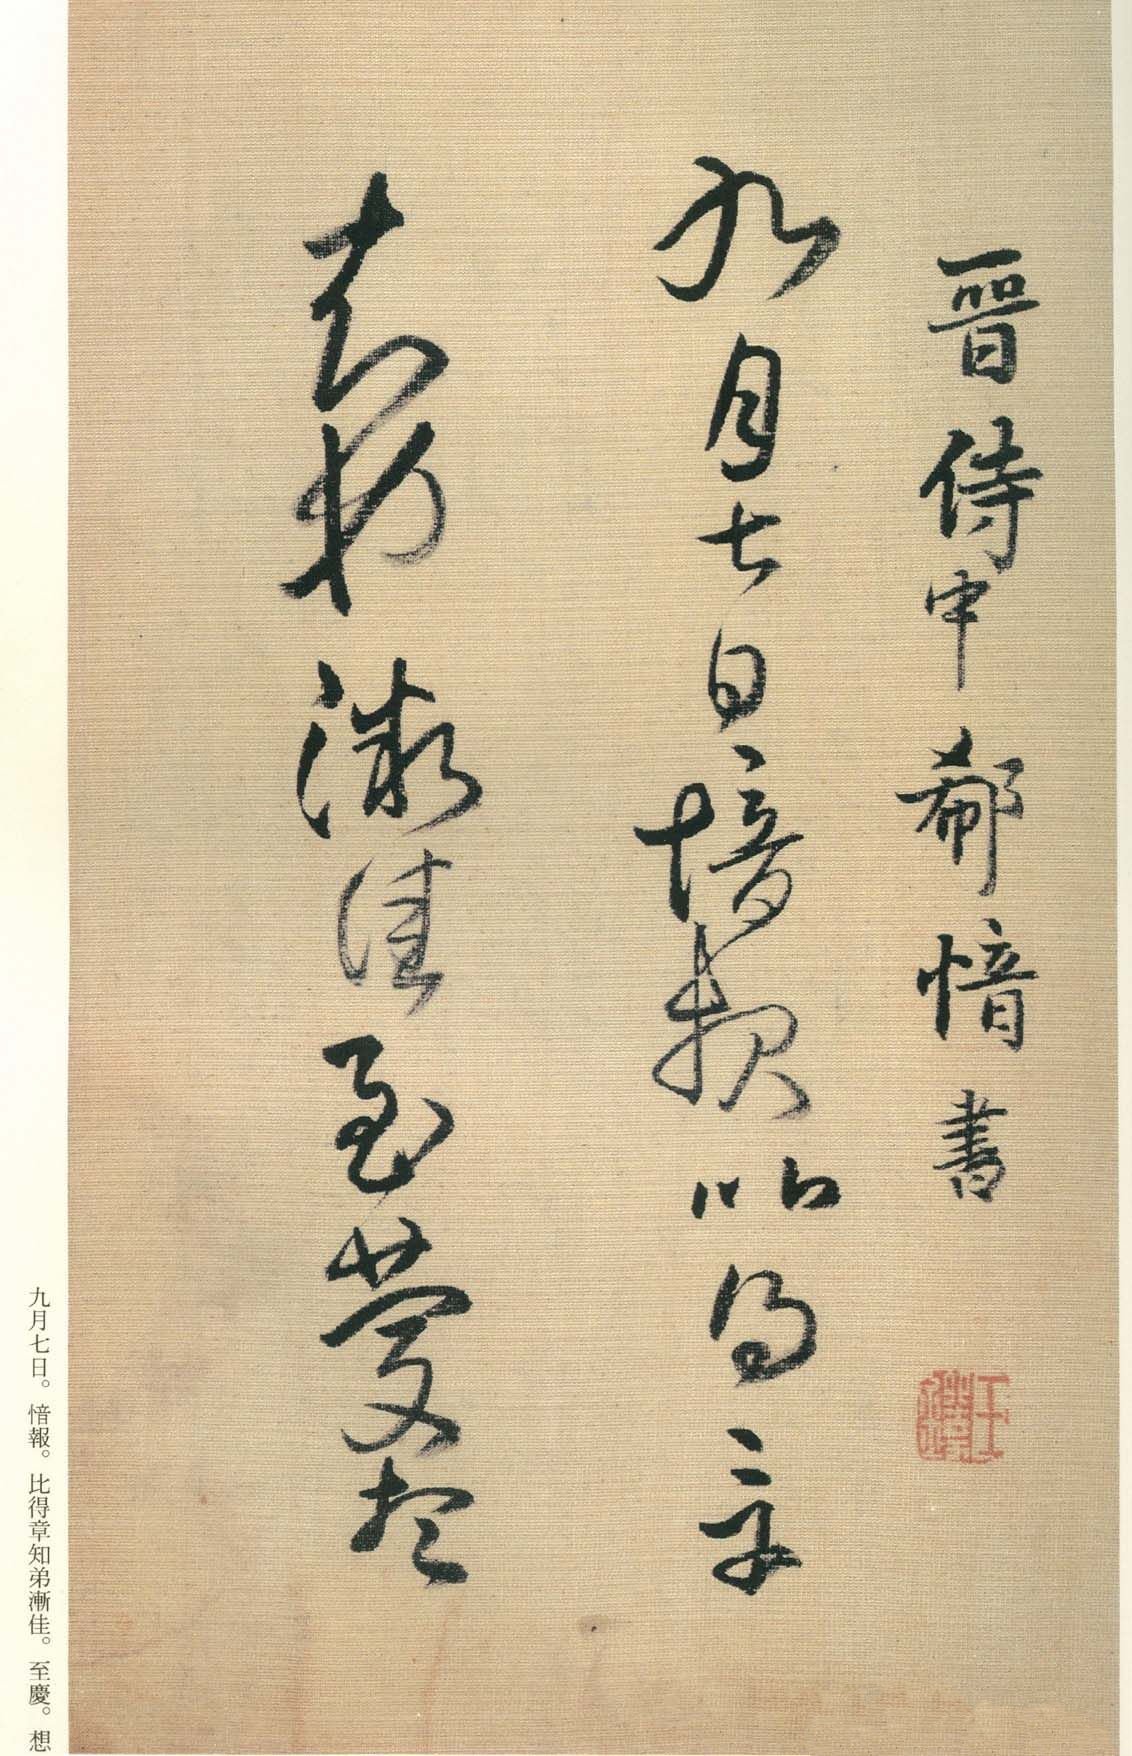 晋侍中郗愔書
九月七日愔報比得章
知弟漸佳至慶想
九月七日。愔報。比得章知弟漸佳。至慶。想